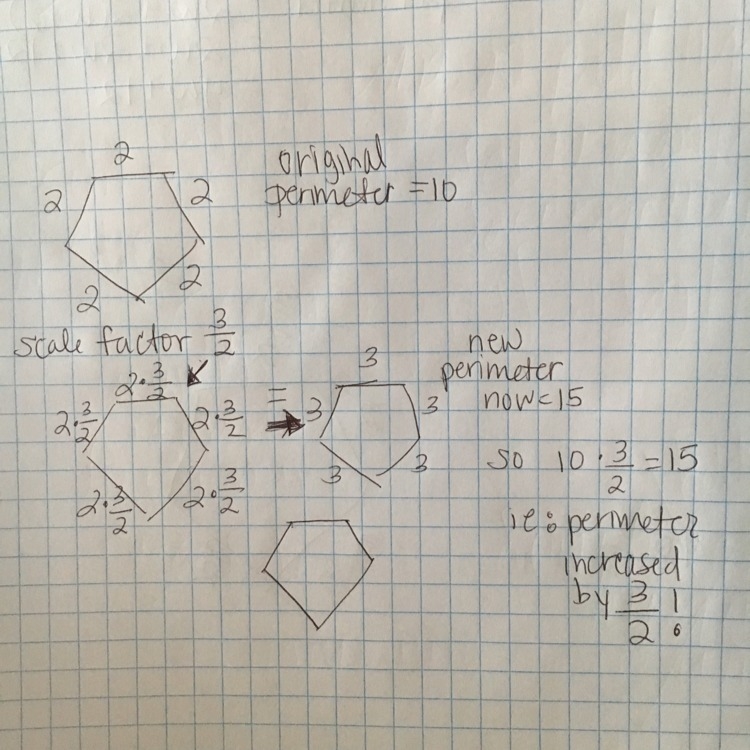 2
2
2
2
2
original
perimeter = 10
scale factor 3/2
2·3/2
2·3/2
2·3/2
2·3/2
2·3/2
=
3
3
3
3
3
new
perimeter
now = 15
so 10 · 3/2 = 15
ie: perimeter
increased
by 3/2 !